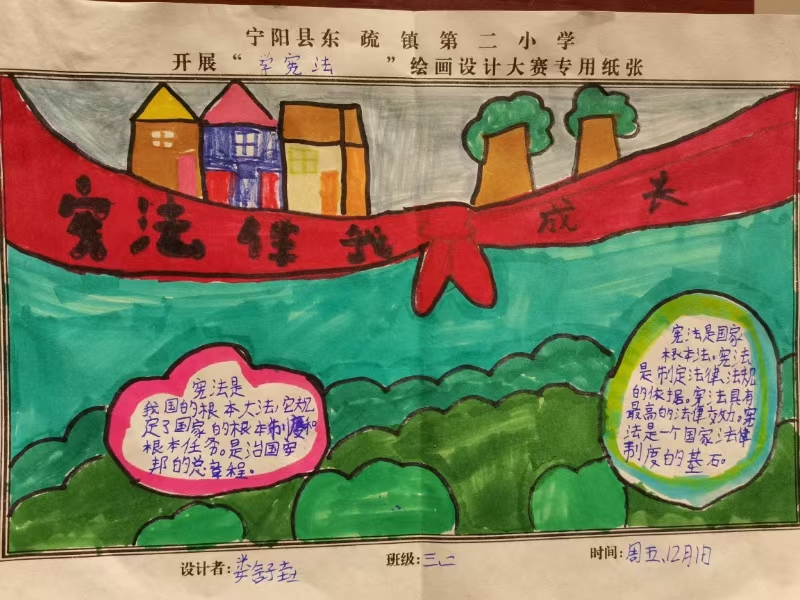 宁阳县东疏镇第二小学
开展“学宪法”绘画设计大赛专用纸张
宪法伴我成长
宪法是
我国的根本大法,它规
定了国家的根本制度和
根本任务。是治国安
邦的总章程。
宪法是国家
根本法。宪法
是制定法律、法规
的依据。宪法具有
最高的法律效力。宪
法是一个国家法律
制度的基石。
设计者:娄舒
班级:三二
时间:周五、12月1日